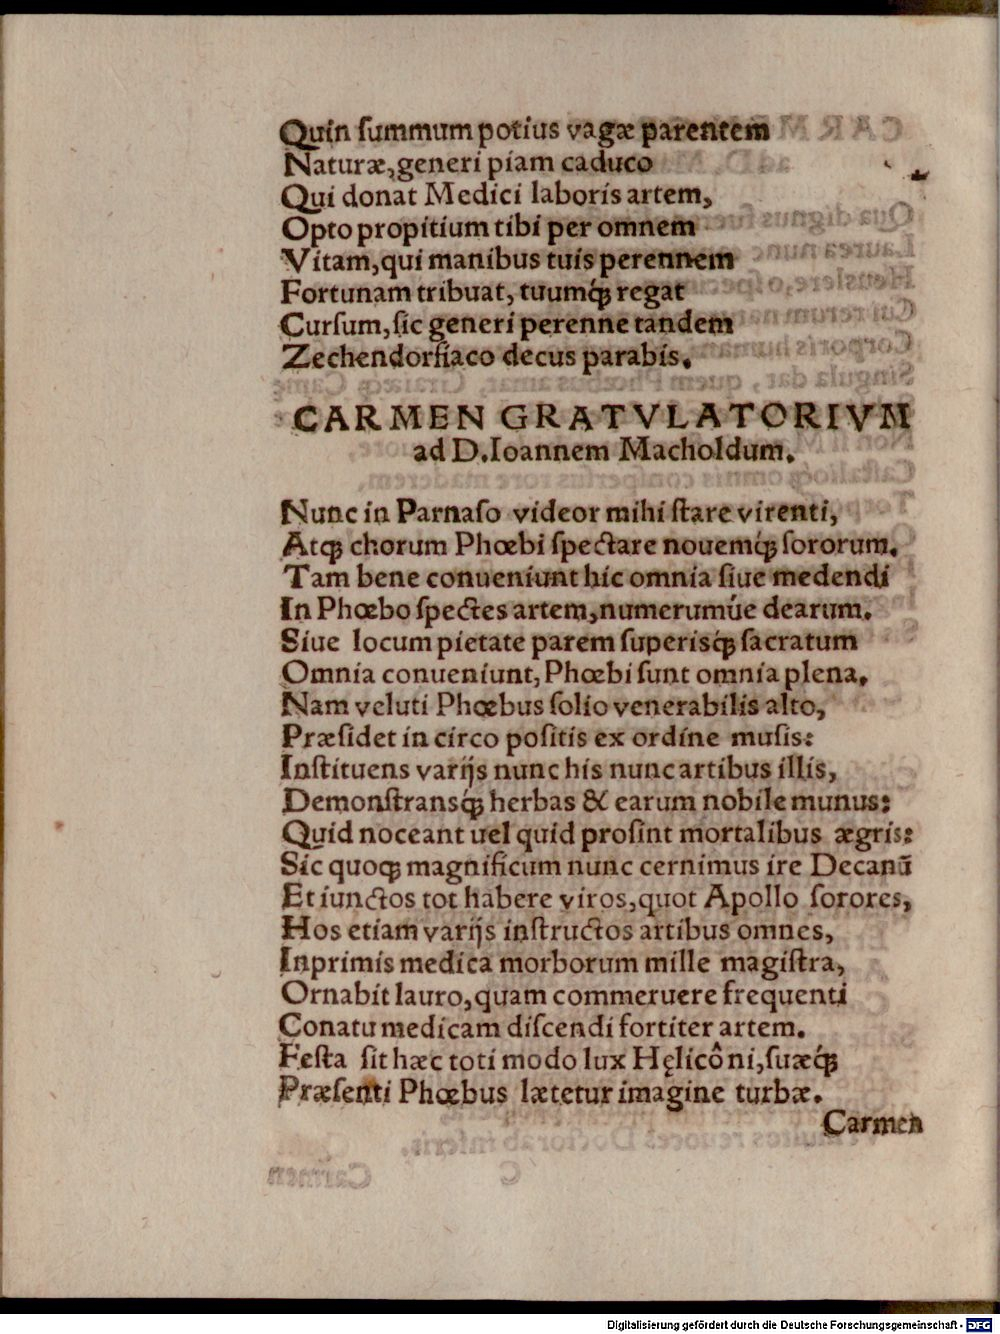 Quin ſummum potius vagæ parentem
Naturæ, generi piam caduco
Qui donat Medici laboris artem,
Opto propitium tibi per omnem
Vitam, qui manibus tuis perennem
Fortunam tribuat, tuumq́; regat
Curſum, ſic generi perenne tandem
Zechendorfiaco decus parabis.
CARMEN GRATVLATORIVM
ad D. Ioannem Macholdum.
Nunc in Parnaſo videor mihi ſtare virenti,
Atq; chorum Phœbi ſpectare nouemq́; ſororum.
Tam bene conueniunt hic omnia ſiue medendi
In Phœbo ſpectes artem, numerumúe dearum.
Siue locum pietate parem ſuperisq́; ſacratum
Omnia conueniunt, Phœbi ſunt omnia plena.
Nam veluti Phœbus ſolio venerabilis alto,
Præſidet in circo poſitis ex ordine muſis:
Inſtituens varijs nunc his nunc artibus illis,
Demonſtransq́; herbas & earum nobile munus:
Quid noceant uel quid proſint mortalibus ægris:
Sic quoq; magnificum nunc cernimus ire Decanū
Et iunctos tot habere viros, quot Apollo ſorores,
Hos etiam varijs inſtructos artibus omnes,
Inprimis medica morborum mille magiſtra,
Ornabit lauro, quam commeruere frequenti
Conatu medicam diſcendi fortiter artem.
Feſta ſit hæc toti modo lux Hęlicôni, ſuæq́;
Præſenti Phœbus lætetur imagine turbæ.
Carmen
Digitalisierung gefördert durch die Deutsche Forschungsgemeinschaft - DFG